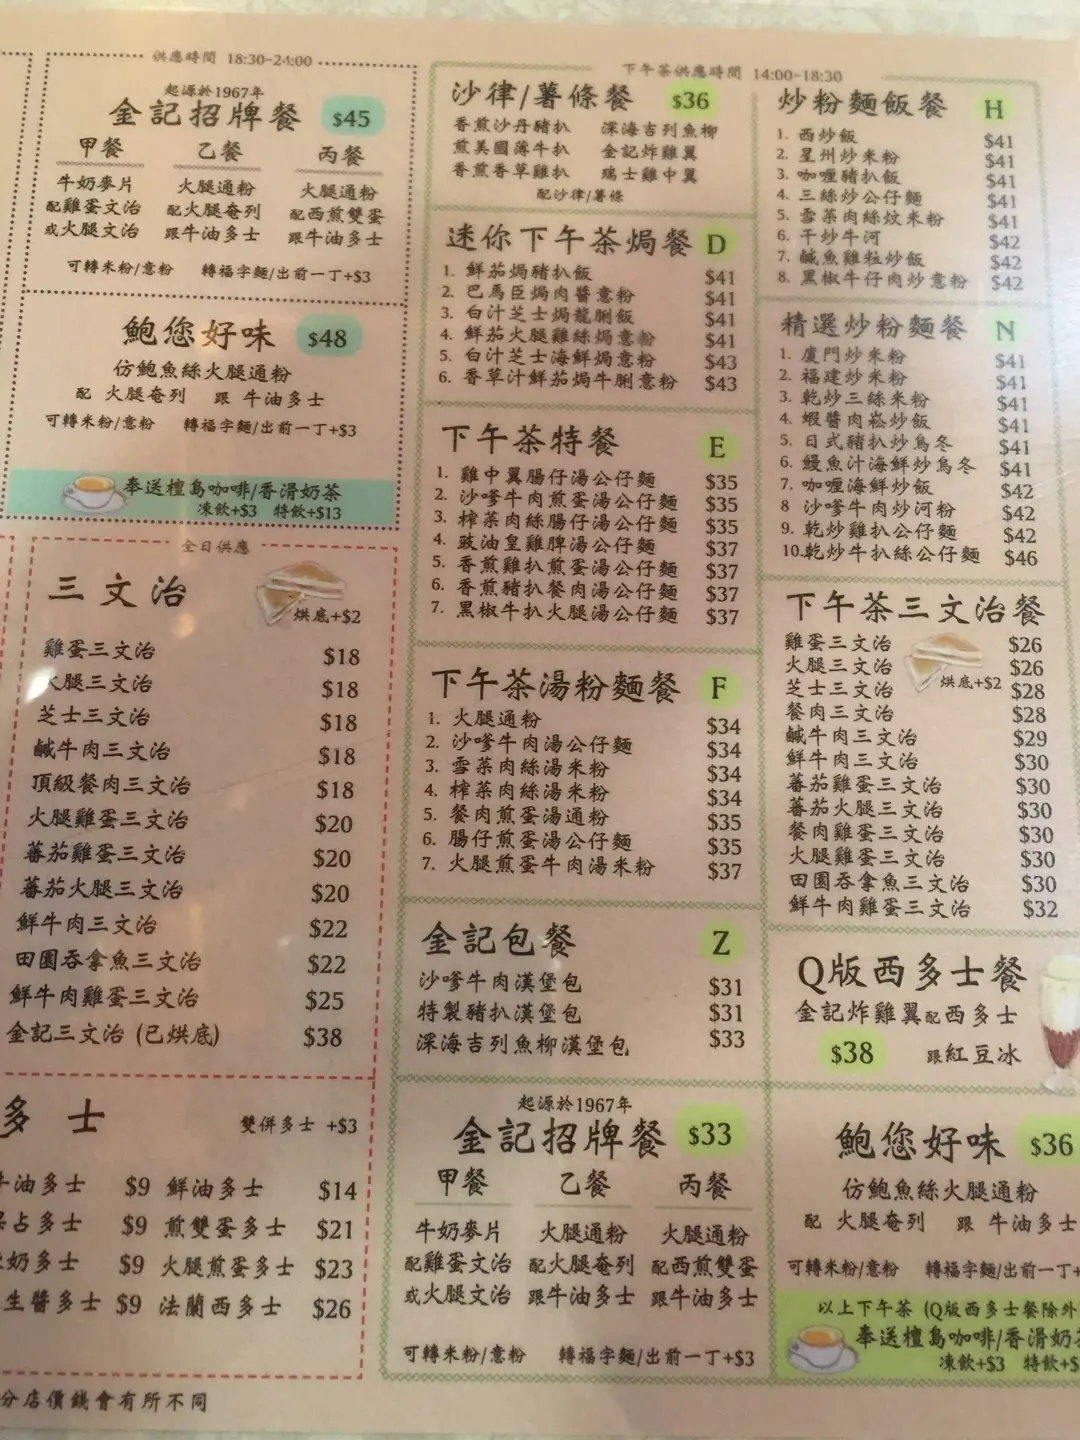 供應時間 18:30-24:00
起源於1967年
金記招牌餐 $45
甲餐 乙餐 丙餐
牛奶麥片 火腿通粉 火腿通粉
配雞蛋文治 配火腿奄列 配西煎雙蛋
或火腿文治 跟牛油多士 跟牛油多士
可轉米粉/意粉 轉福字麵/出前一丁+$3
鮑您好味 $48
仿鮑魚絲火腿通粉
配 火腿奄列 跟 牛油多士
可轉米粉/意粉 轉福字麵/出前一丁+$3
奉送檀島咖啡/香滑奶茶
凍飲+$3 特飲+$13
全日供應
三文治
烘底+$2
雞蛋三文治 $18
火腿三文治 $18
芝士三文治 $18
鹹牛肉三文治 $18
頂級餐肉三文治 $18
火腿雞蛋三文治 $20
蕃茄雞蛋三文治 $20
蕃茄火腿三文治 $20
鮮牛肉三文治 $22
田園吞拿魚三文治 $22
鮮牛肉雞蛋三文治 $25
金記三文治 (已烘底) $38
多士 雙併多士 +$3
牛油多士 $9 鮮油多士 $14
占多士 $9 煎雙蛋多士 $21
奶多士 $9 火腿煎蛋多士 $23
生醬多士 $9 法蘭西多士 $26
分店價錢會有所不同
下午茶供應時間 14:00-18:30
沙律/薯條餐 $36
香煎沙丹豬扒 深海吉列魚柳
煎美國薄牛扒 金記炸雞翼
香煎香草雞扒 瑞士雞中翼
配沙律/薯條
迷你下午茶焗餐 D
1. 鮮茄焗豬扒飯 $41
2. 巴馬臣焗肉醬意粉 $41
3. 白汁芝士焗龍脷飯 $41
4. 鮮茄火腿雞絲焗意粉 $41
5. 白汁芝士海鮮焗意粉 $43
6. 香草汁鮮茄焗牛脷意粉 $43
下午茶特餐 E
1. 雞中翼腸仔湯公仔麵 $35
2. 沙嗲牛肉煎蛋湯公仔麵 $35
3. 榨菜肉絲腸仔湯公仔麵 $35
4. 豉油皇雞脾湯公仔麵 $37
5. 香煎雞扒煎蛋湯公仔麵 $37
6. 香煎豬扒餐肉湯公仔麵 $37
7. 黑椒牛扒火腿湯公仔麵 $37
下午茶湯粉麵餐 F
1. 火腿通粉 $34
2. 沙嗲牛肉湯公仔麵 $34
3. 雪菜肉絲湯米粉 $34
4. 榨菜肉絲湯米粉 $34
5. 餐肉煎蛋湯通粉 $35
6. 腸仔煎蛋湯公仔麵 $35
7. 火腿煎蛋牛肉湯米粉 $37
金記包餐 Z
沙嗲牛肉漢堡包 $31
特製豬扒漢堡包 $31
深海吉列魚柳漢堡包 $33
起源於1967年
金記招牌餐 $33
甲餐 乙餐 丙餐
牛奶麥片 火腿通粉 火腿通粉
配雞蛋文治 配火腿奄列 配西煎雙蛋
或火腿文治 跟牛油多士 跟牛油多士
可轉米粉/意粉 轉福字麵/出前一丁+$3
炒粉麵飯餐 H
1. 西炒飯 $41
2. 星州炒米粉 $41
3. 咖喱豬扒飯 $41
4. 三絲炒公仔麵 $41
5. 雪菜肉絲炆米粉 $41
6. 干炒牛河 $42
7. 鹹魚雞粒炒飯 $42
8. 黑椒牛仔肉炒意粉 $42
精選炒粉麵餐 N
1. 廈門炒米粉 $41
2. 福建炒米粉 $41
3. 乾炒三絲米粉 $41
4. 蝦醬肉崧炒飯 $41
5. 日式豬扒炒烏冬 $41
6. 鰻魚汁海鮮炒烏冬 $41
7. 咖喱海鮮炒飯 $42
8 沙嗲牛肉炒河粉 $42
9. 乾炒雞扒公仔麵 $42
10.乾炒牛扒絲公仔麵 $46
下午茶三文治餐
烘底+$2
雞蛋三文治 $26
火腿三文治 $26
芝士三文治 $28
餐肉三文治 $28
鹹牛肉三文治 $29
鮮牛肉三文治 $30
蕃茄雞蛋三文治 $30
蕃茄火腿三文治 $30
餐肉雞蛋三文治 $30
火腿雞蛋三文治 $30
田園吞拿魚三文治 $30
鮮牛肉雞蛋三文治 $32
Q版西多士餐
金記炸雞翼配西多士
$38 跟紅豆冰
鮑您好味 $36
仿鮑魚絲火腿通粉
配 火腿奄列 跟 牛油多士
可轉米粉/意粉 轉福字麵/出前一丁+
以上下午茶 (Q版西多士餐除外
奉送檀島咖啡/香滑奶茶
凍飲+$3 特飲+$